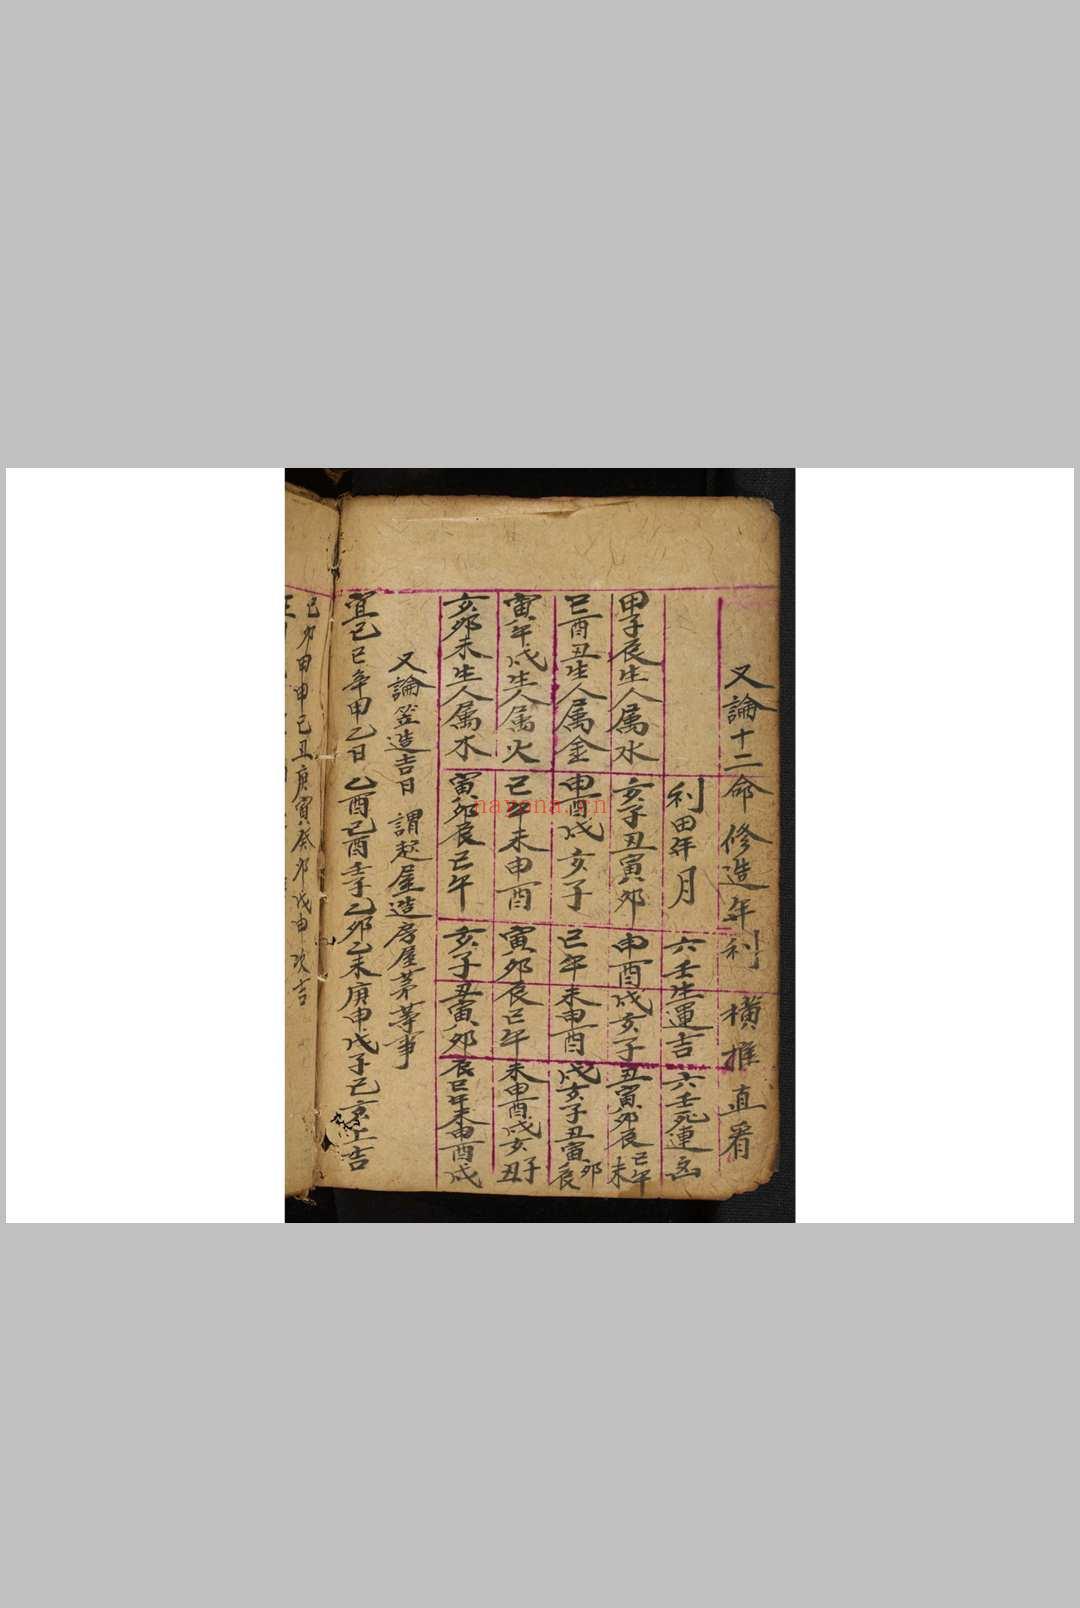 又論十二命修造年利 橫推直看
利田年月 六壬生運吉 六壬死連凶
甲子辰生人属水 亥子丑寅卯 申酉戌亥子 丑寅卯辰巳午未
巳酉丑生人属金 申酉戌亥子 巳午未申酉 戌亥子丑寅卯辰
寅午戌生人属火 巳午未申酉 寅卯辰巳午 未申酉戌亥子丑
亥卯未生人属木 寅卯辰巳午 亥子丑寅卯 辰巳午未申酉戌
又論笠造吉日 謂起屋造房屋茅等事
宜己巳辛甲乙日 乙酉己酉壬子乙卯乙未庚申戊子己亥上吉
己卯甲申己丑庚寅癸卯戊申次吉
nayona.cn